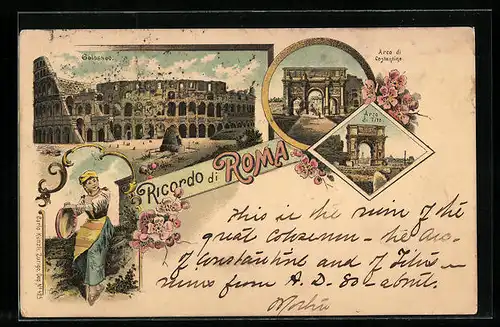 Colosseo
Arco di
Costantino
Arco
di Tito
Ricordo di ROMA
This is the ruin of the
great Coloseum – the Arc
of Constantine and of Titus –
ruins from A.D. 80 – about.